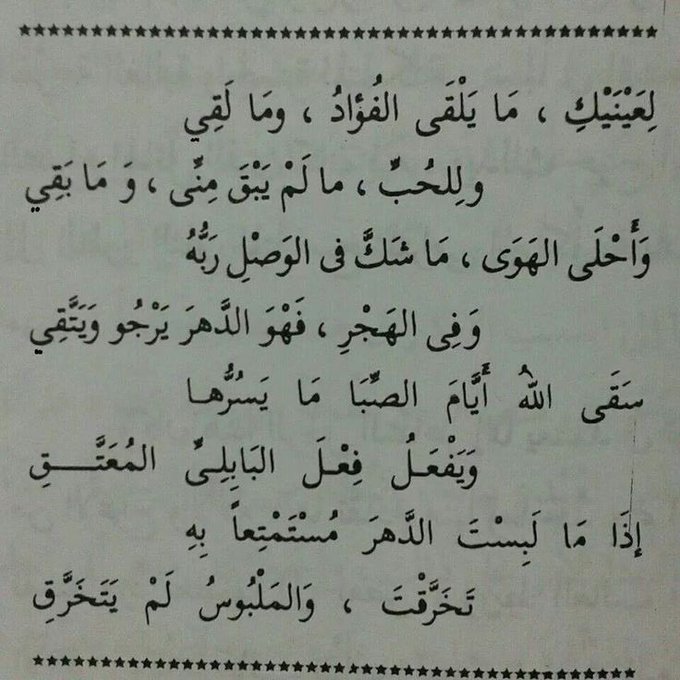 لِعَيْنَيْكِ ، مَا يَلْقَى الفُؤَادُ ، ومَا لَقِي
ولِلحُبِّ ، ما لَمْ يَبْقَ مِنِّى ، وَ مَا بَقِي
وَأَحْلَى الهَوَى ، مَا شَكَّ فى الوَصْلِ رَبُّهُ
وَفِى الهَجْرِ ، فَهْوَ الدَّهرَ يَرْجُو وَيَتَّقِي
سَقَى اللهُ أَيَّامَ الصِّبَا مَا يَسُرُّهـا
وَيَفْعَلُ فِعْلَ البَابِلِىِّ المُعَتَّـــقِ
إِذَا مَا لَبِسْتَ الدَّهرَ مُسْتَمْتِعاً بِهِ
تَخَرَّقْتَ ، وَالمَلْبُوسُ لَمْ يَتَخَرَّقِ